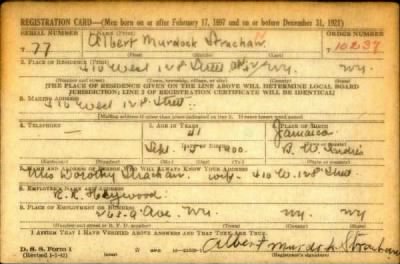 REGISTRATION CARD—(Men born on or after February 17, 1897 and on or before December 31, 1921)
SERIAL NUMBER 1. NAME (Print) ORDER NUMBER
T 77 Albert Murdock Strachan 10237
(First) (Middle) (Last)
2. PLACE OF RESIDENCE (Print)
410 West 128 Street N.Y. N.Y.
(Number and street) (Town, township, village, or city) (County) (State)
[THE PLACE OF RESIDENCE GIVEN ON THE LINE ABOVE WILL DETERMINE LOCAL BOARD
JURISDICTION; LINE 2 OF REGISTRATION CERTIFICATE WILL BE IDENTICAL]
3. MAILING ADDRESS
410 West 128 Street
[Mailing address if other than place indicated on line 2. If same insert word same]
4. TELEPHONE 5. AGE IN YEARS 6. PLACE OF BIRTH
— 41 Jamaica
DATE OF BIRTH (Town or county)
Sept. 1900 B.W. Indies
(Exchange) (Number) (Mo.) (Day) (Yr.) (State or country)
7. NAME AND ADDRESS OF PERSON WHO WILL ALWAYS KNOW YOUR ADDRESS
Mrs Dorothy Strachan wife 410 W. 128 St.
8. EMPLOYER'S NAME AND ADDRESS
Haywood
9. PLACE OF EMPLOYMENT OR BUSINESS
Ave. N.Y. N.Y.
(Number and street or R. F. D. number) (Town) (County) (State)
I AFFIRM THAT I HAVE VERIFIED ABOVE ANSWERS AND THAT THEY ARE TRUE.
D. S. S. Form 1
(Revised 1-1-42) Albert Murdock Strachan
(Registrant's signature)